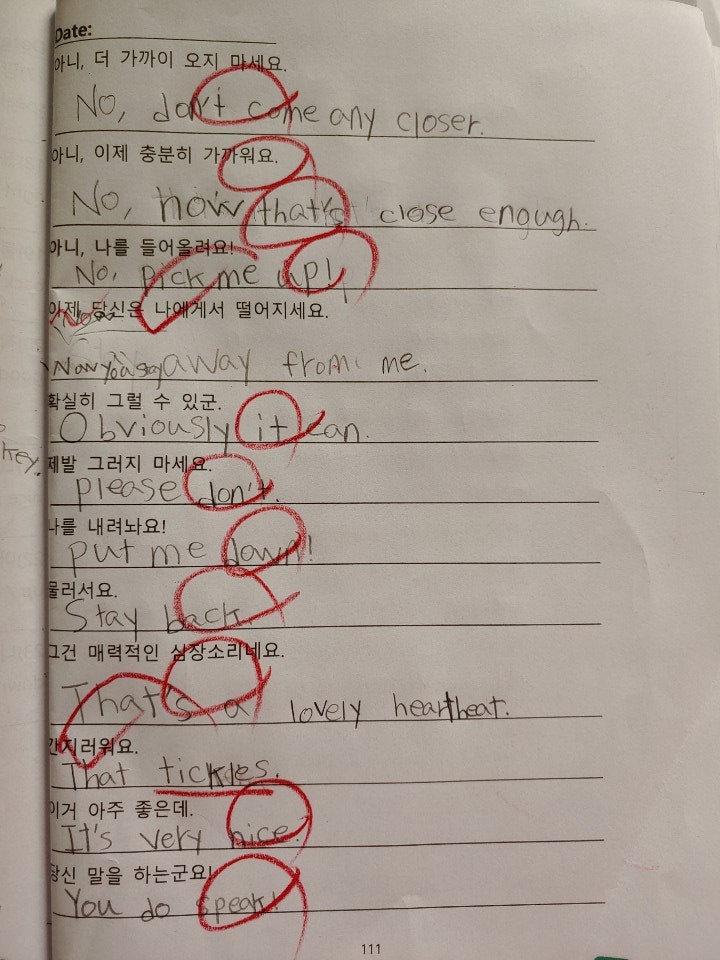 Date:
아니, 더 가까이 오지 마세요.
No, don't come any closer.
아니, 이제 충분히 가까워요.
No, now that's close engugh.
아니, 나를 들어올려요!
No, pick me up!
이제 당신은 나에게서 떨어지세요.
Now
away from me.
확실히 그럴 수 있군.
Obviously it can.
key.
제발 그러지 마세요.
please don't.
나를 내려놔요!
put me down!
물러서요.
Stay back.
그건 매력적인 심장소리네요.
That's a lovely heartbeat.
간지러워요.
That tickles.
이거 아주 좋은데.
It's very nice.
당신 말을 하는군요!
You do speak!
111